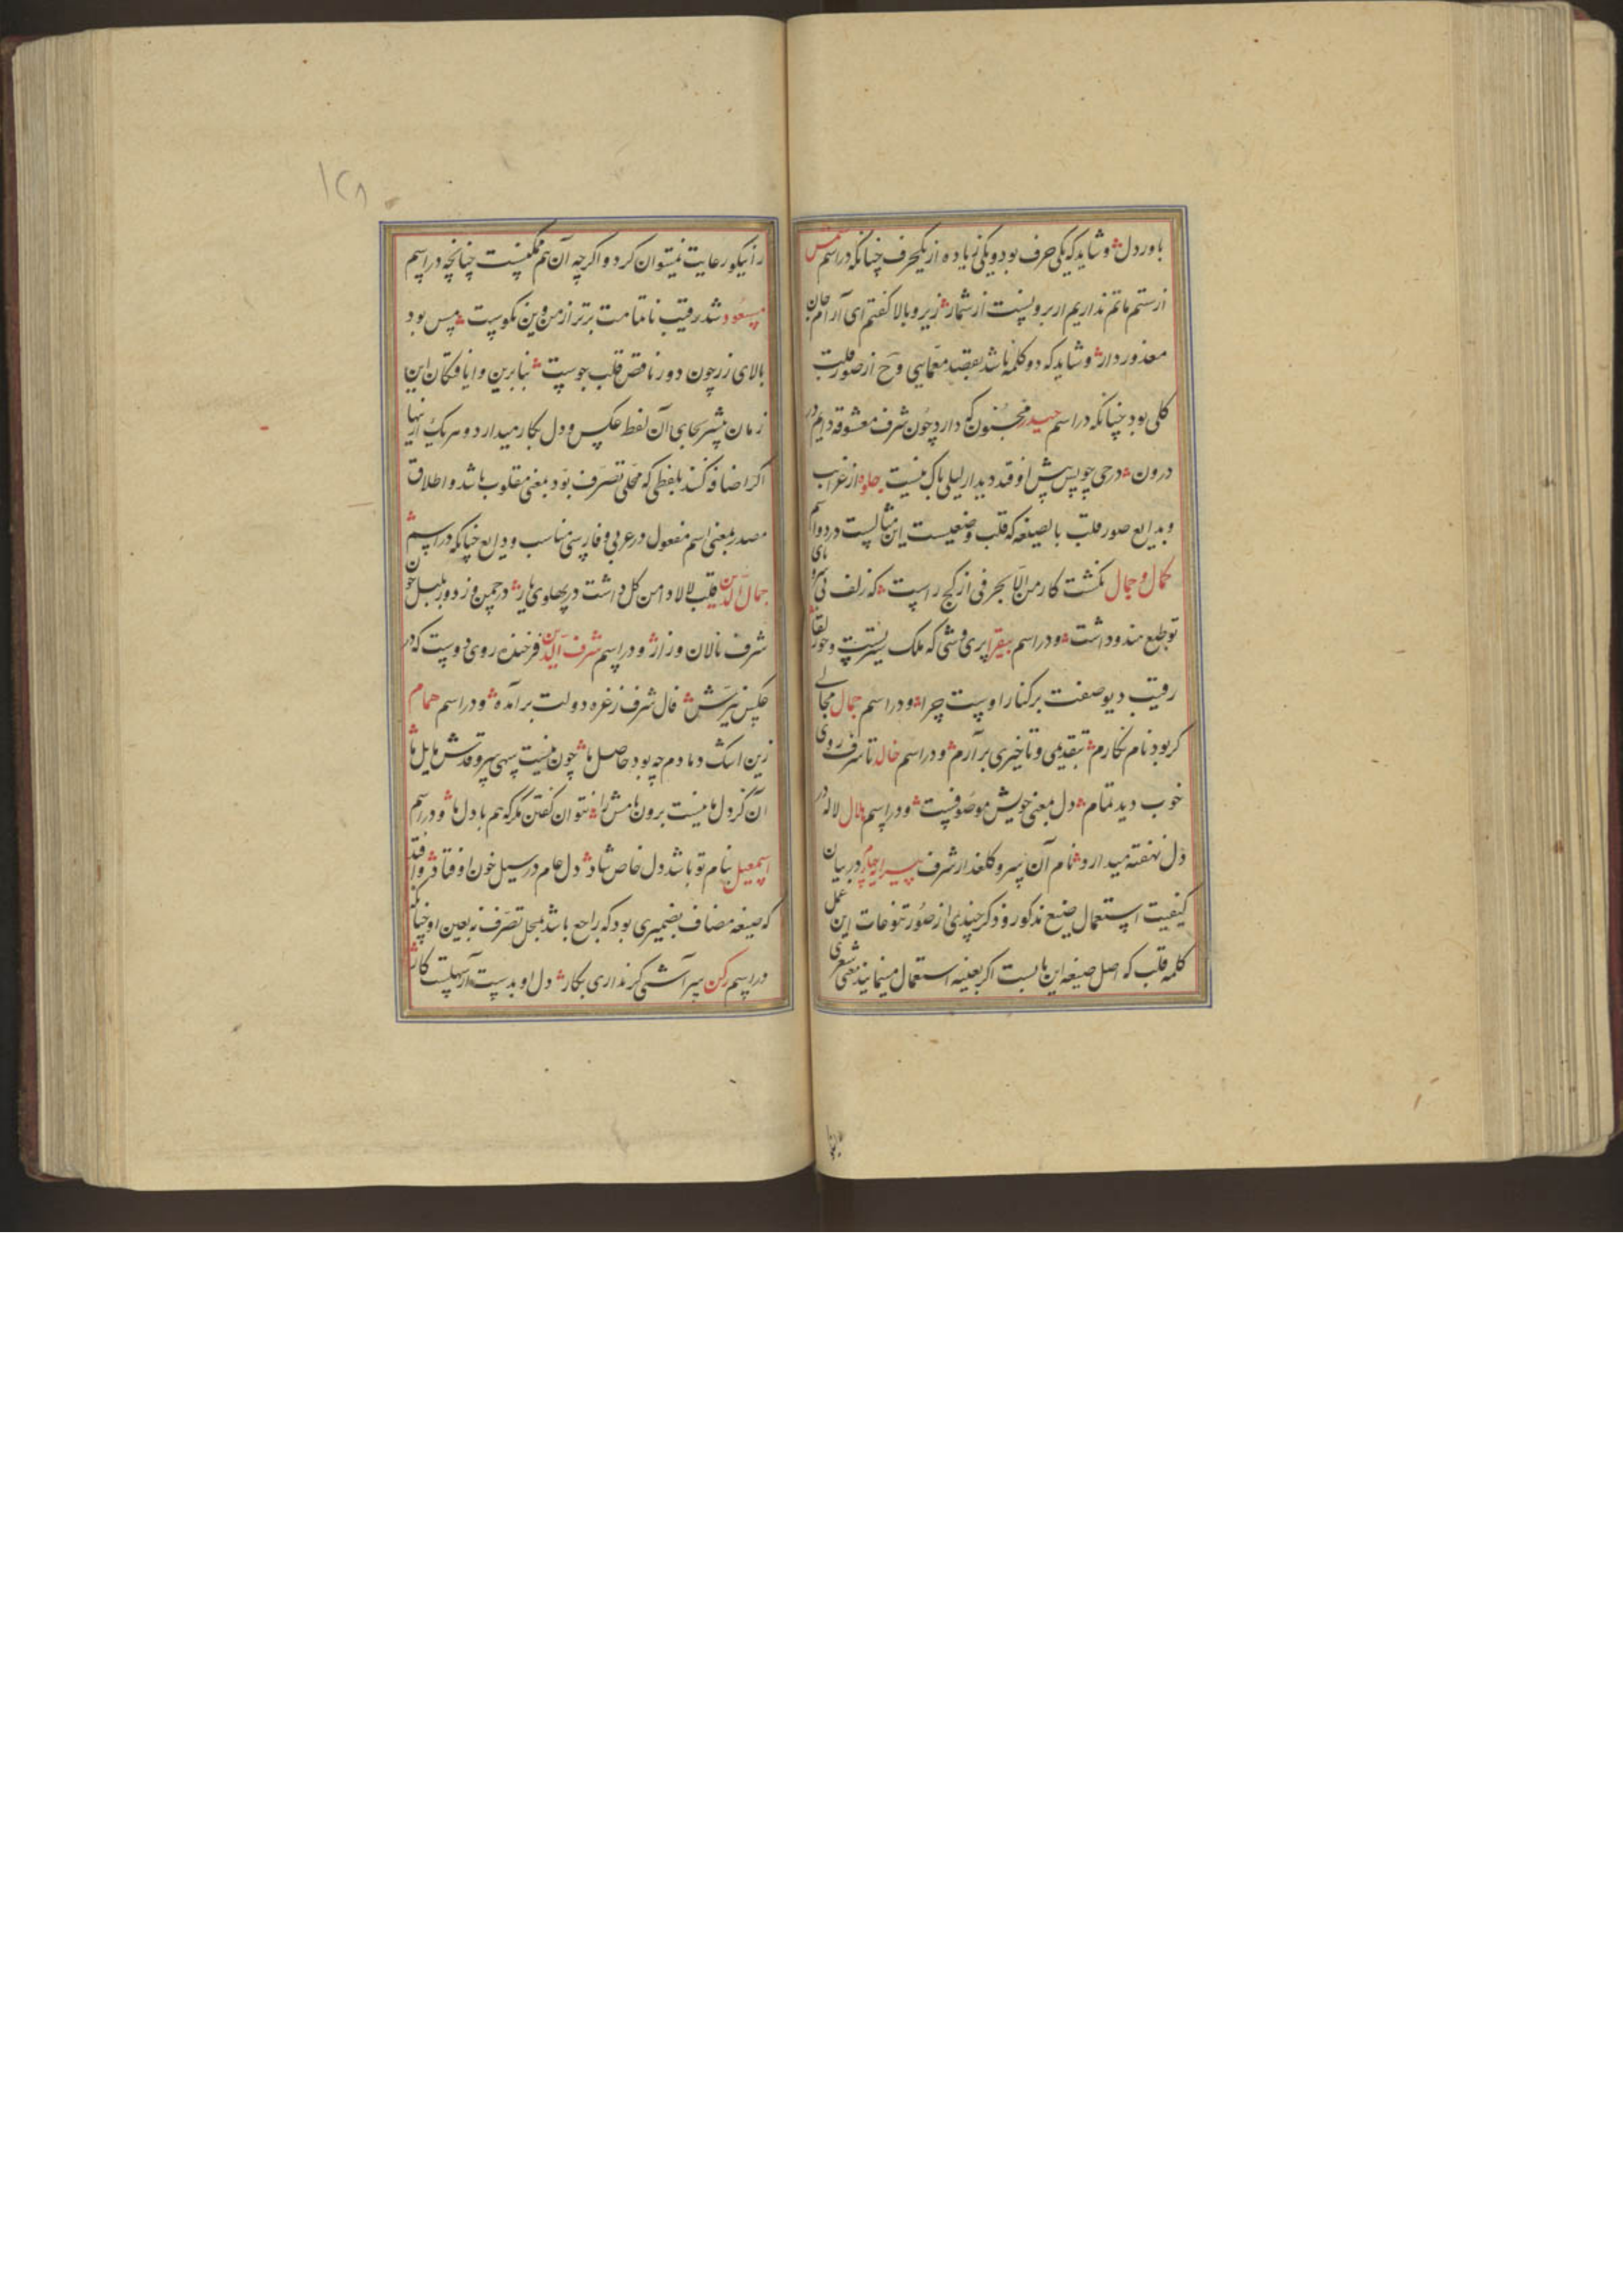 باور دل وشاید که یکی حرف بود ویکی زیاده از یکحرف چنانکه در اسم شمس
از ستم ماتم نداریم ار برو پست از شمار زیر وبالا گفتم ای آرام جان
معذور دار وشاید که دو کلمه باشد بقصد معمایی وح از صور قلب
کلی بود چنانکه در اسم حیدر مجنون که دارد چون شرف معشوقه دایم در
درون در حی چو پس پیش اوفتد دیدار لیلی باک نیست جلوه از غرایب
و بدایع صور قلب بالصیغه که قلب وضعیست این مثالیست در دو اسم
کمال و جمال نگشت کار من الا بحرفی از کج راست که زلف
تو طبع هندو داشت ودر اسم پری وشی که ملک سیرتست وحور لقا
رقیب دیو صفت بر کنار اوست چرا ودر اسم جمال مجالی
گر بود نام نگارم بتقدیمی وتاخیری برآرم ودر اسم خالد تا شرف روی
خوب دید تمام دل بمعنی خویش موصوفست ودر اسم بلال لاله در
دل نهفته میدارد نام آن سرو گلعذار شرف پیرایه چهارم در بیان
کیفیت استعمال صیغ مذکور وذکر چندی از صور تنوعات این عمل
کلمه قلب که اصل صیغه این بابست اگر بعینه استعمال مینمایند معنی شعری
را نیکو رعایت نمیتوان کرد و اگرچه آن هم ممکنست چنانچه در اسم
مسعود شد رقیب ناتمامت برتر از من وین نکوست مس بود
بالای زر چون دور ناقص قلب جوست بنابرین وایافتگان این
زمان بیشتر بجای آن لفظ عکس و دل بکار میدارد و هر یک از اینها
اگر اضافه کنند بلفظی که محل تصرف بود بمعنی مقلوب باشد و اطلاق
مصدر بمعنی اسم مفعول در عربی وفارسی مناسب و دایع چنانکه در اسم
جمال الدین قلب لالا دامن گل داشت در پهلوی یار در چمن وز دور بلبل چون
شرف نالان وزار ودر اسم شرف الدین فرخنده روی دوست که در
عکس نیرش فال شرف ز غره دولت برآمده ودر اسم همام
زین اشک دمادم چه بود حاصل ما چون نیست سهی سرو قدش مایل ما
آن کز دل ما نیست برون نامش را نتوان گفتن مگر که هم با دل ما ودر اسم
اسمعیل بنام تو باشد دل خاص شاد دل عام در سیل خون اوفتاد
که صیغه مضاف بضمیری بود که راجع باشد بمحل تصرف نه بعین او چنانکه
در اسم رکن سر آشتی گر نداری بکار دل او بدست آر سهلست کار